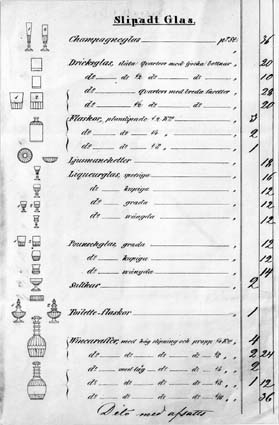 Slipadt Glas.
Champagneglas pr St: 36
Dricksglas, släta quarters med tjocka bottnar " 20
do do 1/2 do do " 10
do quarters med breda facetter " 28
do 1/6 do do " 20
Flaskor, planslipade 1/1 3
do do 1/4 " 2
do do 1/2 " 1
Ljusmanchetter " 18
Liqueurglas, " 16
do kupiga " 12
do grada " 12
do wängda " 12
Pounschglas, grada " 12
do kupiga " 12
do wängda " 14
Saltkar " 2
Toilette-flaskor " 1
Wincaraffer, med hög slipning och propp 4
do do do do 2 24
do med låg do 2
do do do do 1 12
do do do do 36
Dito med afsatts